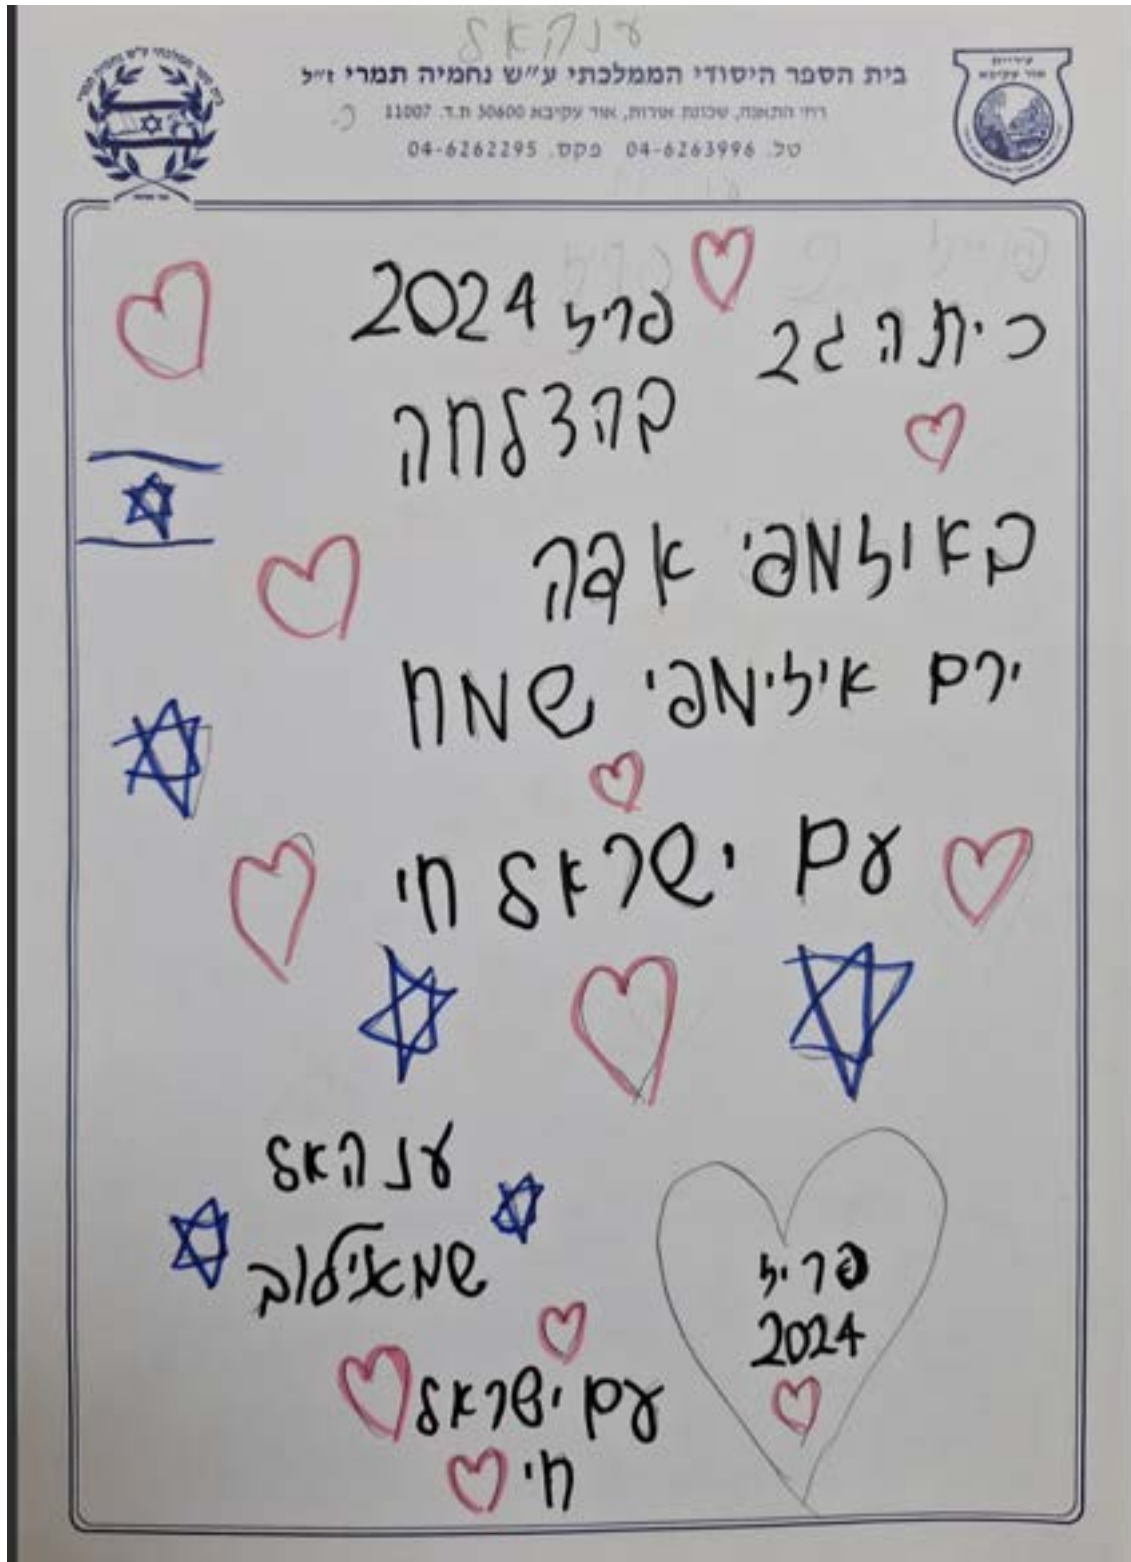 ענהאל
בית הספר היסודי הממלכתי ע״ש נחמיה תמרי ז״ל
רח׳ התאנה, שכונת אורות, אור עקיבא 30600 ת.ד. 11007
טל. 04-6263996 פקס. 04-6262295
עיריית
אור עקיבא
כיתה ג2 פריז 2024
בהצלחה
באולמפי אפה
ירם אילימפי שמח
עם ישראל חי
ענהאל
שמאילוב
עם ישראל
חי
פריז
2024